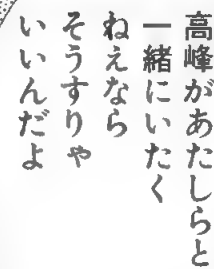 高峰があたしらと
一緒にいたく
ねえなら
そうすりゃ
いいんだよ